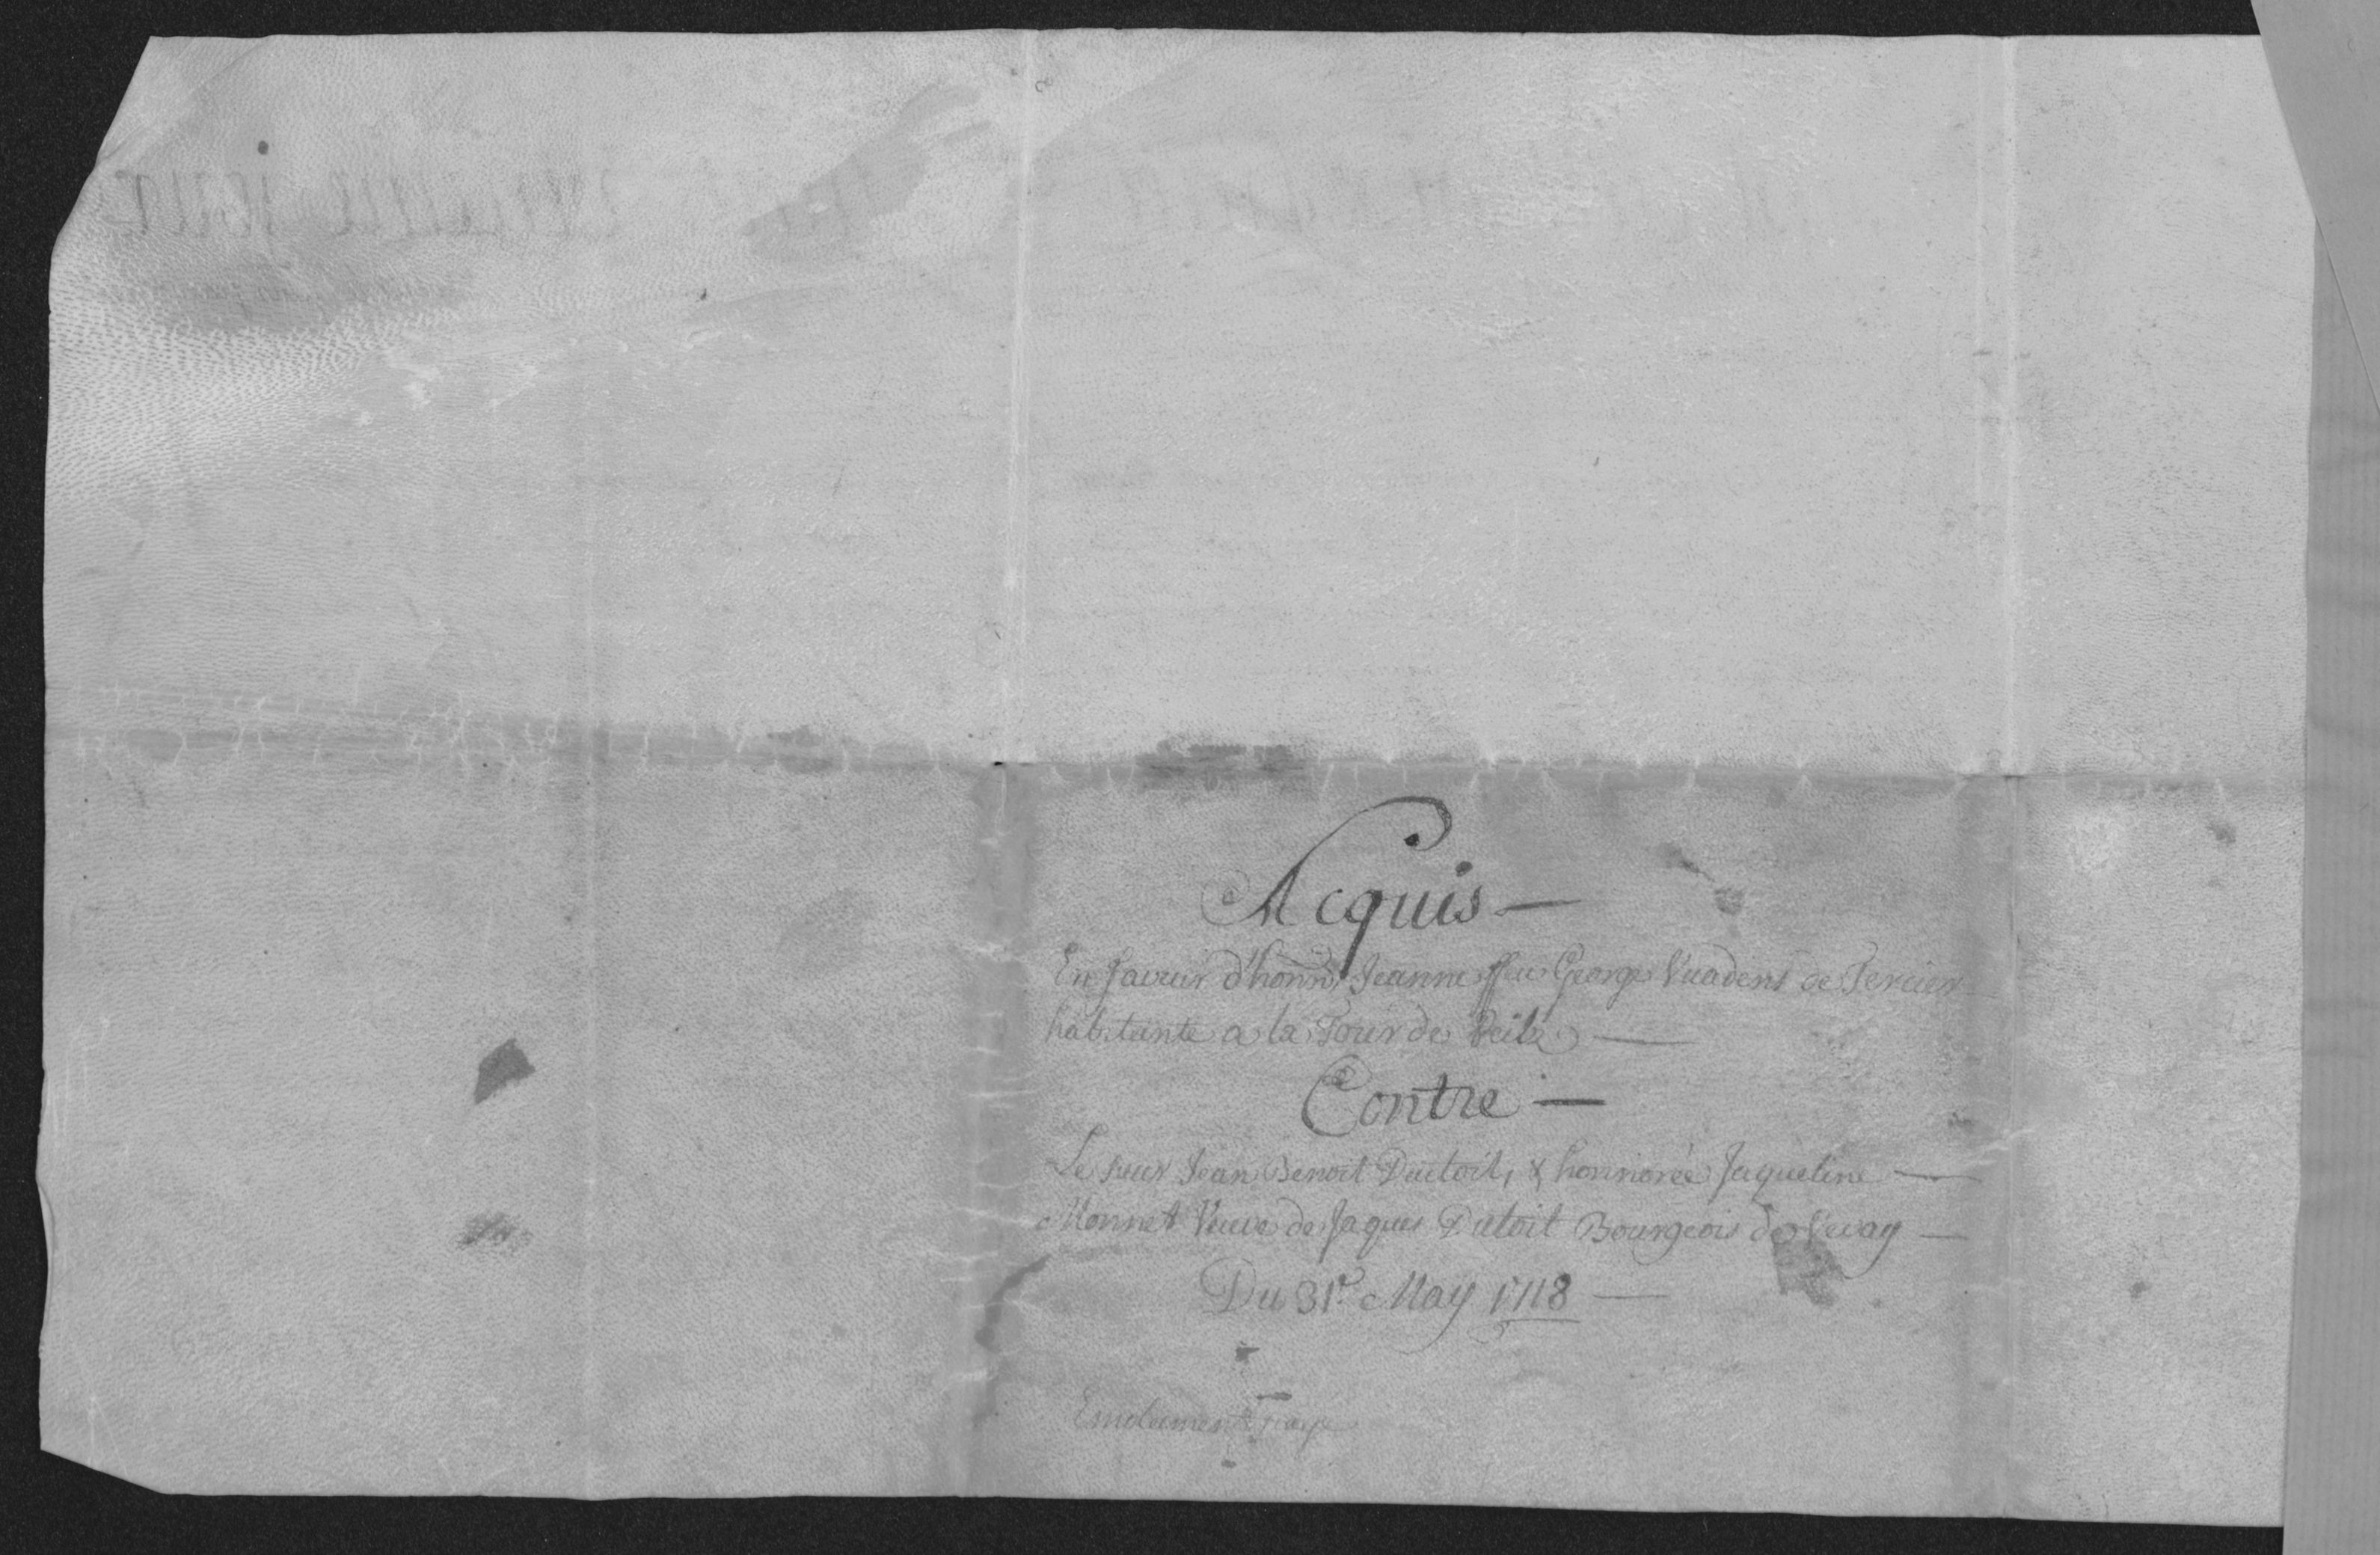 Acquis —
En faveur d'honn. Jeanne ffeu George Vuadens de Tercier
habitante a la Tour de Peilz —
Contre —
Le sieur Jean Benoit Dutoit, & honnorée Jaqueline —
Monnet Veuve de Jaques Dutoit Bourgeois de Vevay —
Du 31e. May 1718 —
Emolument paye